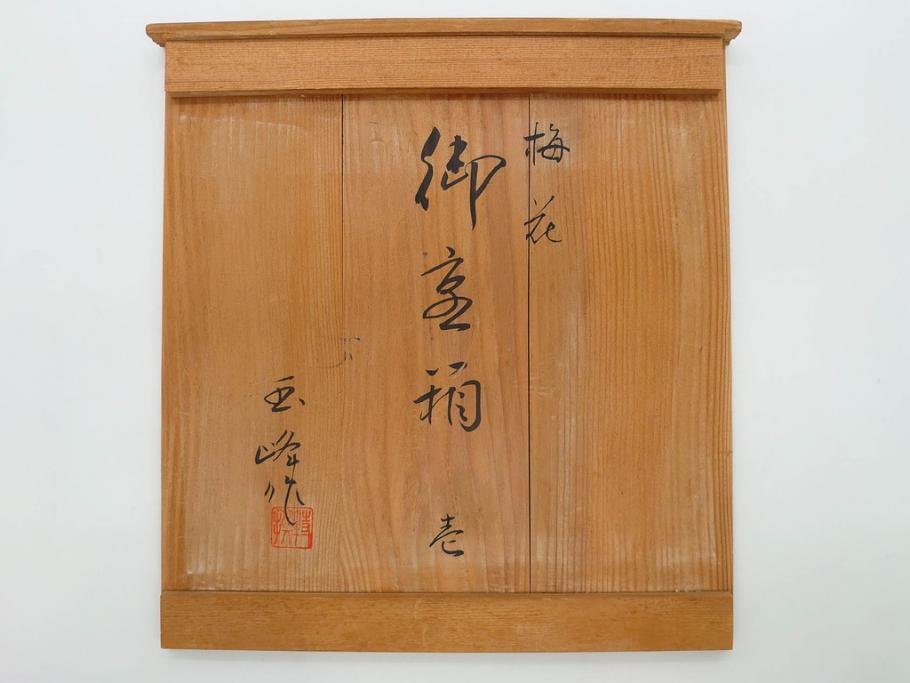 梅花
御莨箱
壱
玉峰作